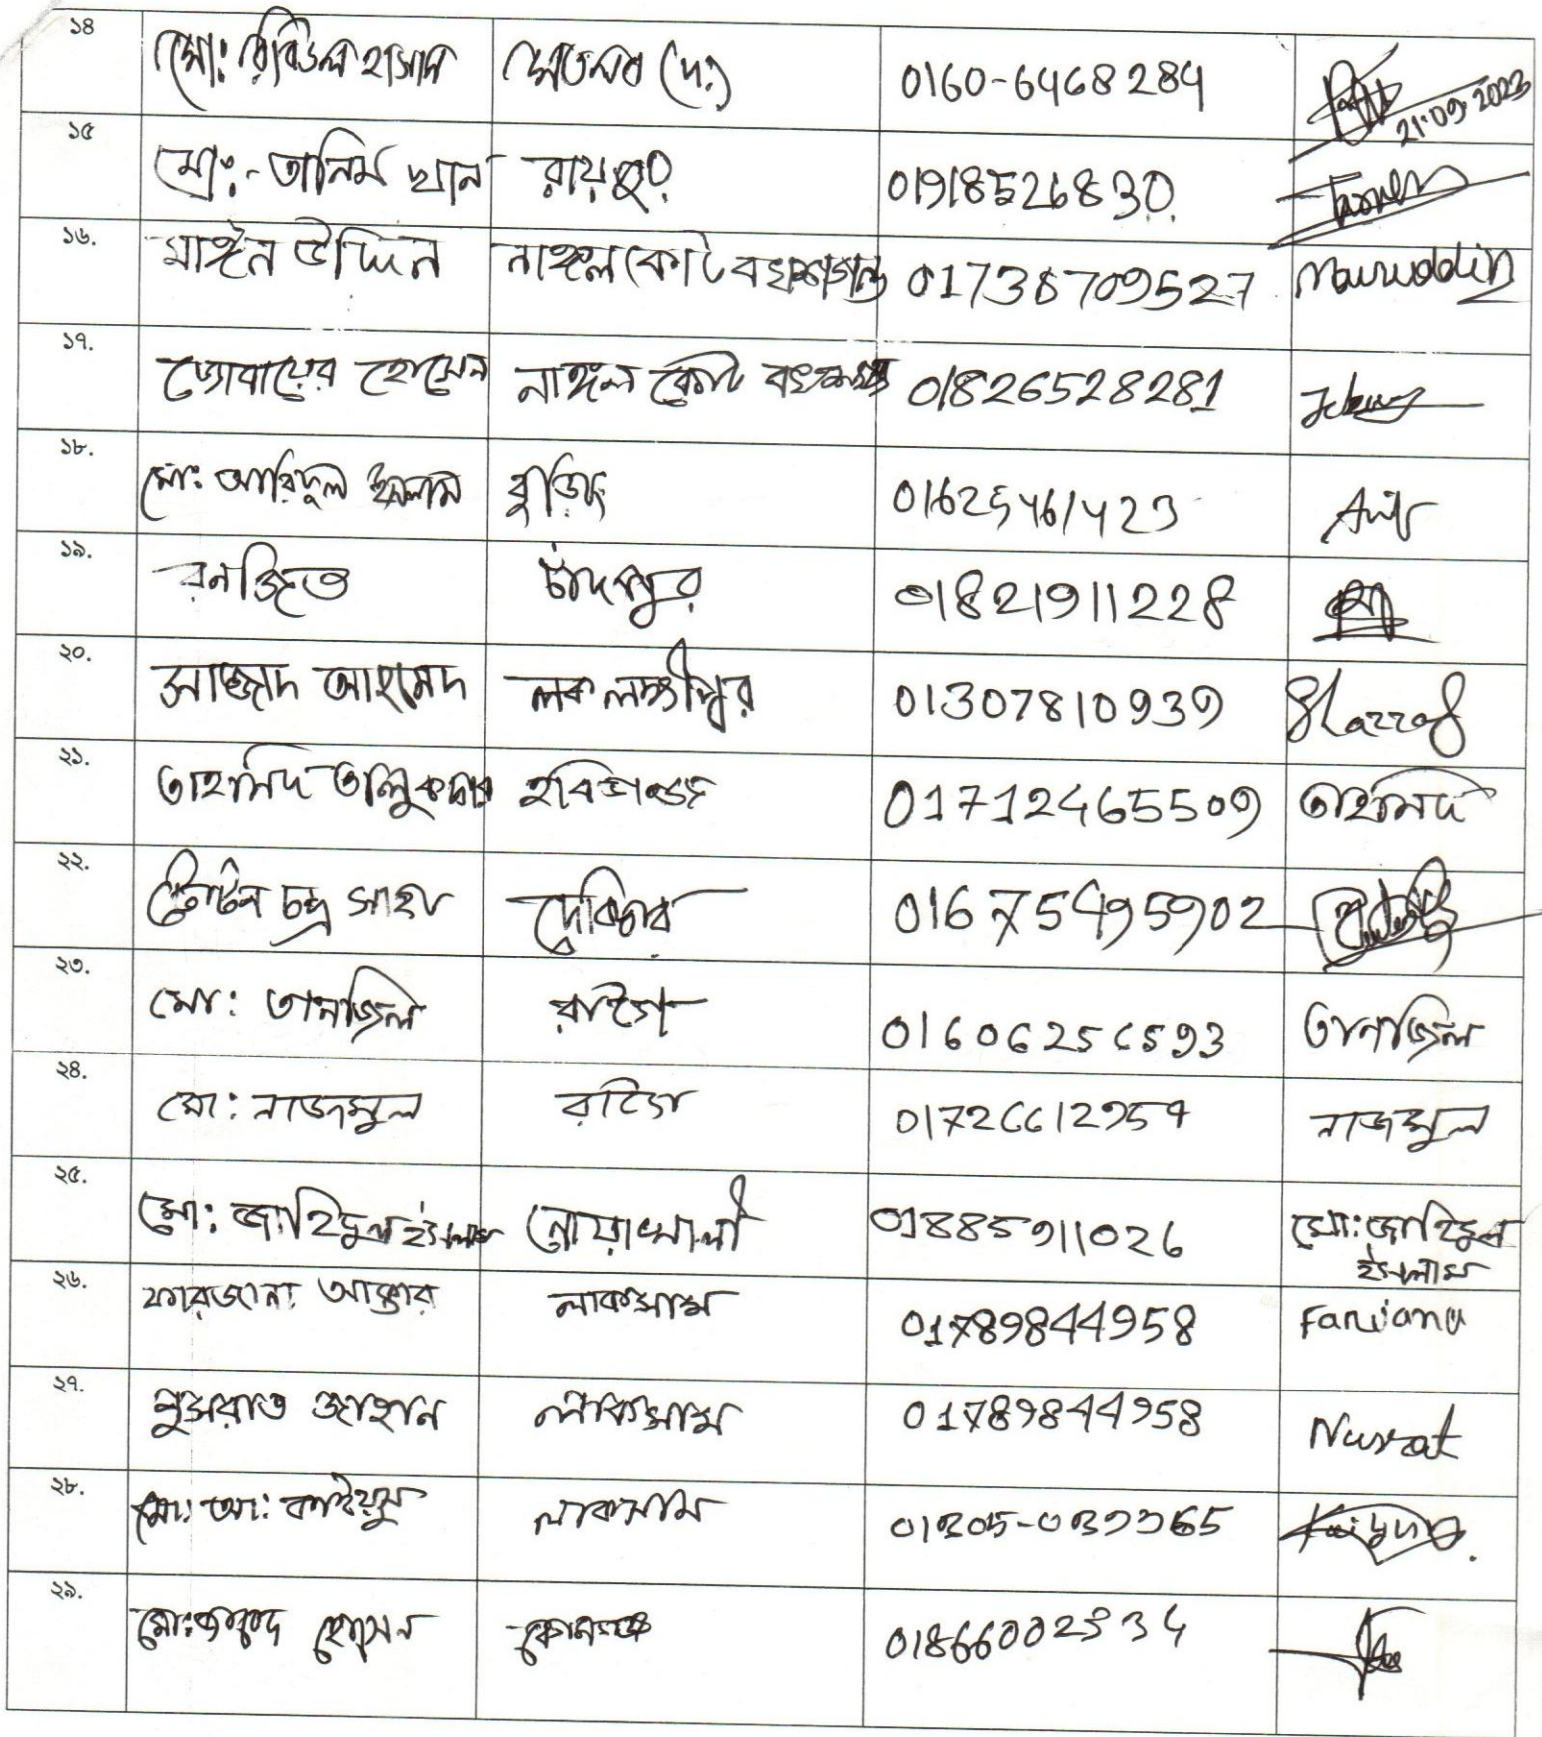 ১৪ মো: রবিউল হাসান মতলব (দ:) 0160-6468284
21.09.2023
১৫ মো:- তানিম খান রায়পুর 01918526830
১৬. মাঈন উদ্দিন নাঙ্গলকোট 01738709527 Mainuddin
১৭. জোবায়ের হোসেন নাঙ্গল কোট 01826528281
১৮. মো: আরিদুল ইসলাম বুড়িচং 01625461423
১৯. রনজিত চাঁদপুর 01821911228
২০. সাজ্জাদ আহমেদ 01307810939
২১. তাহমিদ তালুকদার হবিগঞ্জ 01712465509 তাহমিদ
২২. টোটন চন্দ্র সাহা দেবিদ্বার 01675495902
২৩. মো: তানজিল 01606256593 তানজিল
২৪. মো: নাজমুল 01726612954 নাজমুল
২৫. মো: জাহিদুল ইসলাম নোয়াখালী 01885911026 মো: জাহিদুল
ইসলাম
২৬. ফারজানা আক্তার লাকসাম 01789844958 Farjana
২৭. নুসরাত জাহান লাকসাম 01789844958 Nusrat
২৮. মো: আ: কাইয়ুম লাকসাম
২৯. মো: হোসেন 01866002534